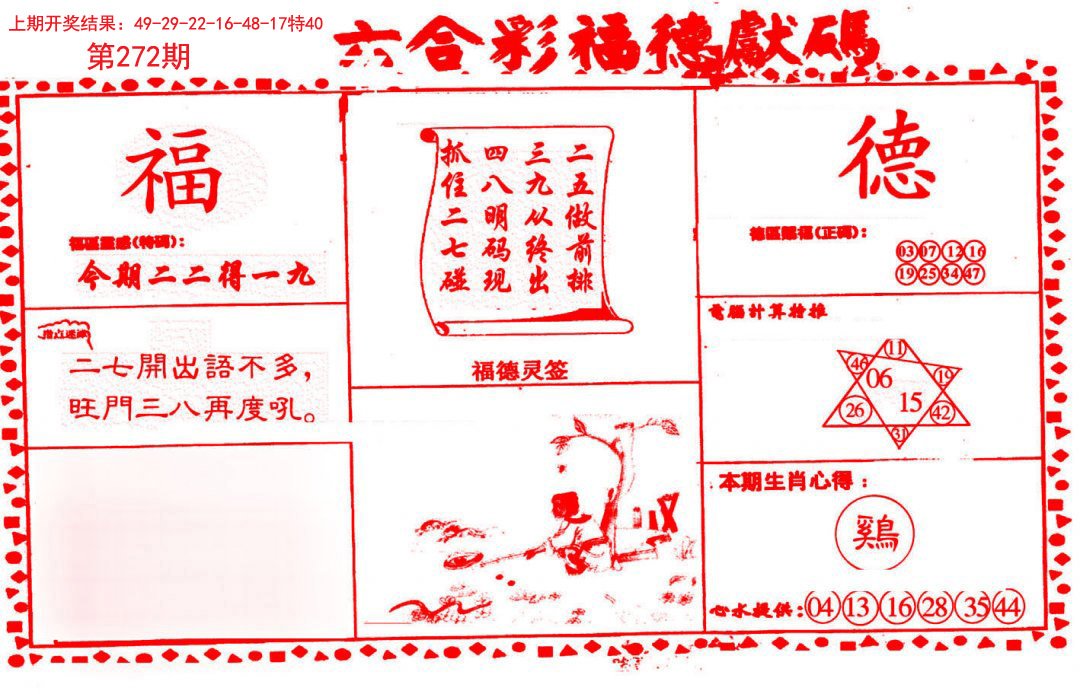 上期开奖结果：49-29-22-16-48-17特40
第272期
六合彩福德獻碼
福
福區靈感(特碼)：
今期二二得一九
指点迷津
二七開出語不多，
旺門三八再度吼。
二五做前排
三九从终出
四八明码现
抓住二七碰
福德灵签
德
德區賜福(正碼)：
03 07 12 16
19 25 34 47
電腦計算特推
11
46 06 19
26 15 42
31
本期生肖心得：
鷄
心水提供：04 13 16 28 35 44